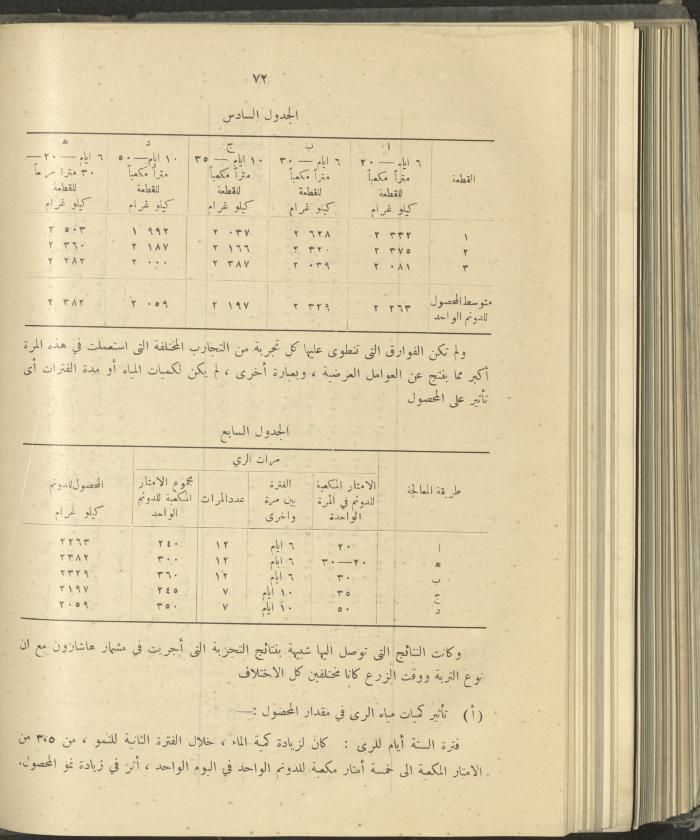 ٧٢
الجدول السادس
القطعة | ا ٦ ايام — ٢٠ متراً مكعباً للقطعة كيلو غرام | ب ٦ ايام — ٣٠ متراً مكعباً للقطعة كيلو غرام | ج ١٠ ايام — ٣٥ متراً مكعباً للقطعة كيلو غرام | د ١٠ ايام — ٥٠ متراً مكعباً للقطعة كيلو غرام | ه ٦ ايام — ٢٠ — ٣٠ متراً للقطعة كيلو غرام
١ | ٢ ٣٣٢ | ٢ ٦٢٨ | ٢ ٠٣٧ | ١ ٩٩٢ | ٢ ٥٠٣
٢ | ٢ ٣٧٥ | ٢ ٣٢٠ | ٢ ١٦٦ | ٢ ١٨٧ | ٢ ٣٦٠
٣ | ٢ ٠٨١ | ٢ ٠٣٩ | ٢ ٣٨٧ | ٢ ٠٠٠ | ٢ ٢٨٢
متوسط المحصول للدونم الواحد | ٢ ٢٦٣ | ٢ ٣٢٩ | ٢ ١٩٧ | ٢ ٠٥٩ | ٢ ٣٨٢
ولم تكن الفوارق التى تنطوى عليها كل تجربة من التجارب المختلفة التى استعملت في هذه المرة
أكبر مما ينتج عن العوامل العرضية ، وبعبارة أخرى ، لم يكن لكميات المياه أو مدة الفترات أى
تأثير على المحصول
الجدول السابع
مرات الري
طريقة المعالجة | الامتار المكعبة للدونم في المرة الواحدة | الفترة بين مرة واخرى | عدد المرات | مجموع الامتار المكعبة للدونم الواحد | المحصول للدونم كيلو غرام
ا | ٢٠ | ٦ ايام | ١٢ | ٢٤٠ | ٢٢٦٣
ه | ٢٠—٣٠ | ٦ ايام | ١٢ | ٣٠٠ | ٢٣٨٢
ب | ٣٠ | ٦ ايام | ١٢ | ٣٦٠ | ٢٣٢٩
ج | ٣٥ | ١٠ ايام | ٧ | ٢٤٥ | ٢١٩٧
د | ٥٠ | ١٠ ايام | ٧ | ٣٥٠ | ٢٠٥٩
وكانت النتائج التى توصل اليها شبيهة بنتائج التجربة التى أجريت في مشمار هاشارون مع ان
نوع التربة ووقت الزرع كانا مختلفين كل الاختلاف
(أ) تأثير كميات مياه الرى في مقدار المحصول :—
فترة الستة أيام للرى : كان لزيادة كمية الماء ، خلال الفترة الثانية للنمو ، من ٣،٥ من
الامتار المكعبة الى خمسة أمتار مكعبة للدونم الواحد في اليوم الواحد ، أثر في زيادة نمو المحصول.